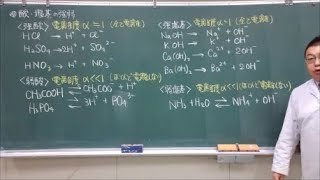 ◎酸・塩基の強弱
〈強酸〉電離度 α≒1 (全て電離)
HCl → H⁺ + Cl⁻
H₂SO₄ → 2H⁺ + SO₄²⁻
HNO₃ → H⁺ + NO₃⁻
〈弱酸〉電離度 α<<1 (ほとんど電離しない)
CH₃COOH ⇄ CH₃COO⁻ + H⁺
H₃PO₄ ⇄ 3H⁺ + PO₄³⁻
〈強塩基〉電離度 α≒1 (全て電離)
NaOH → Na⁺ + OH⁻
KOH → K⁺ + OH⁻
Ca(OH)₂ → Ca²⁺ + 2OH⁻
Ba(OH)₂ → Ba²⁺ + 2OH⁻
〈弱塩基〉電離度 α<<1 (ほとんど電離しない)
NH₃ + H₂O ⇄ NH₄⁺ + OH⁻